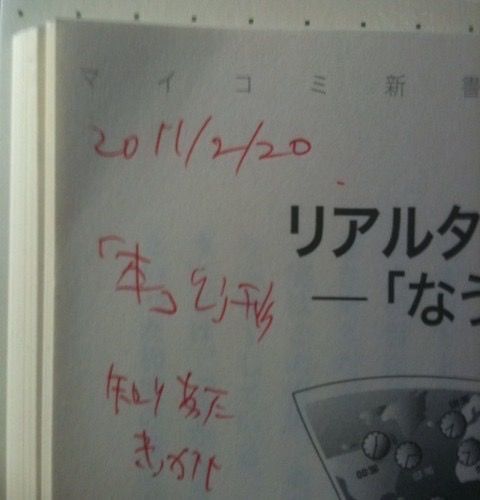 マイコミ新書
2011/2/20
リアルタ
―「なう
「本」という形
知り
きっかけ